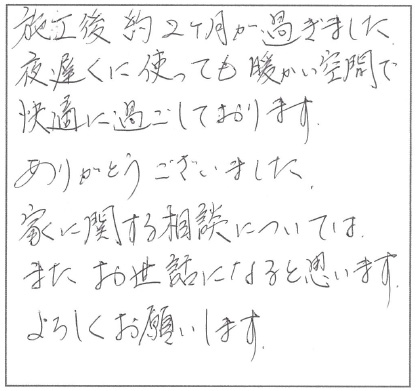 施工後約2ヶ月が過ぎました.
夜遅くに使っても暖かい空間で
快適に過ごしております.
ありがとうございました.
家に関する相談については.
またお世話になると思います.
よろしくお願いします.